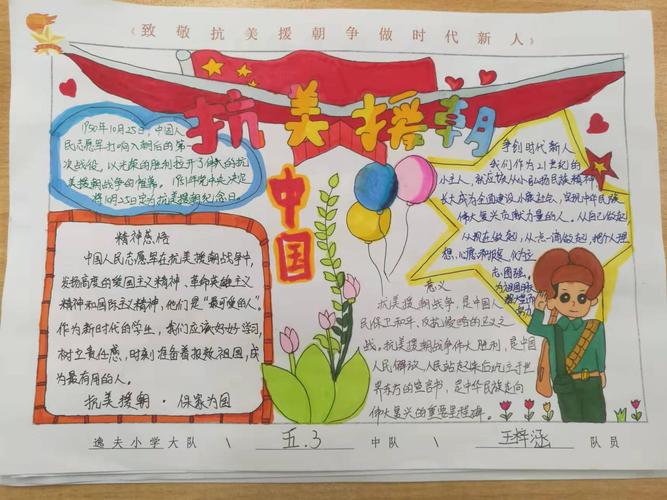 《致敬抗美援朝争做时代新人》
抗美援朝
中国
1950年10月25日,中国人
民志愿军打响入朝后的第一
次战役,以光荣的胜利拉开了伟大的抗
美援朝战争的帷幕。1951年党中央决定
将10月25日定为抗美援朝纪念日。
精神感悟
中国人民志愿军在抗美援朝战争中,
发扬高度的爱国主义精神、革命英雄主义
精神和国际主义精神,他们是"最可爱的人"。
作为新时代的学生,我们应该好好学习,
树立责任感,时刻准备着报效祖国,成
为最有用的人。
抗美援朝·保家为国
争创时代新人
我们作为21世纪的
小主人,就应该从小弘扬民族精神,
长大成为全面建设小康社会、实现中华民族
伟大复兴贡献力量的人。从自己做起
从现在做起,从点滴做起,把个人理
想
志图强。
为祖国的
努力
意义
抗美援朝战争,是中国人
民保卫和平、反抗侵略的正义之
战,抗美援朝战争伟大胜利,是中国
人民解放、人民站起来后屹立于世
界东方的宣言书,是中华民族走向
伟大复兴的重要里程碑。
逸夫小学大队 \ 五.3 中队 \ 王梓涵 队员